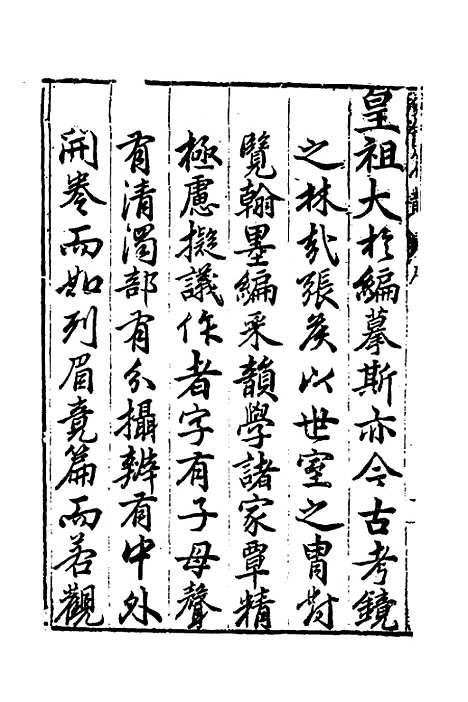 皇祖大於編摹斯亦今古考鏡
之林哉張矦以世室之胄對
覽翰墨編采韻學諸家覃精
極慮擬議作者字有子母聲
有清濁部有分攝辨有中外
開卷而如列眉竟篇而若觀